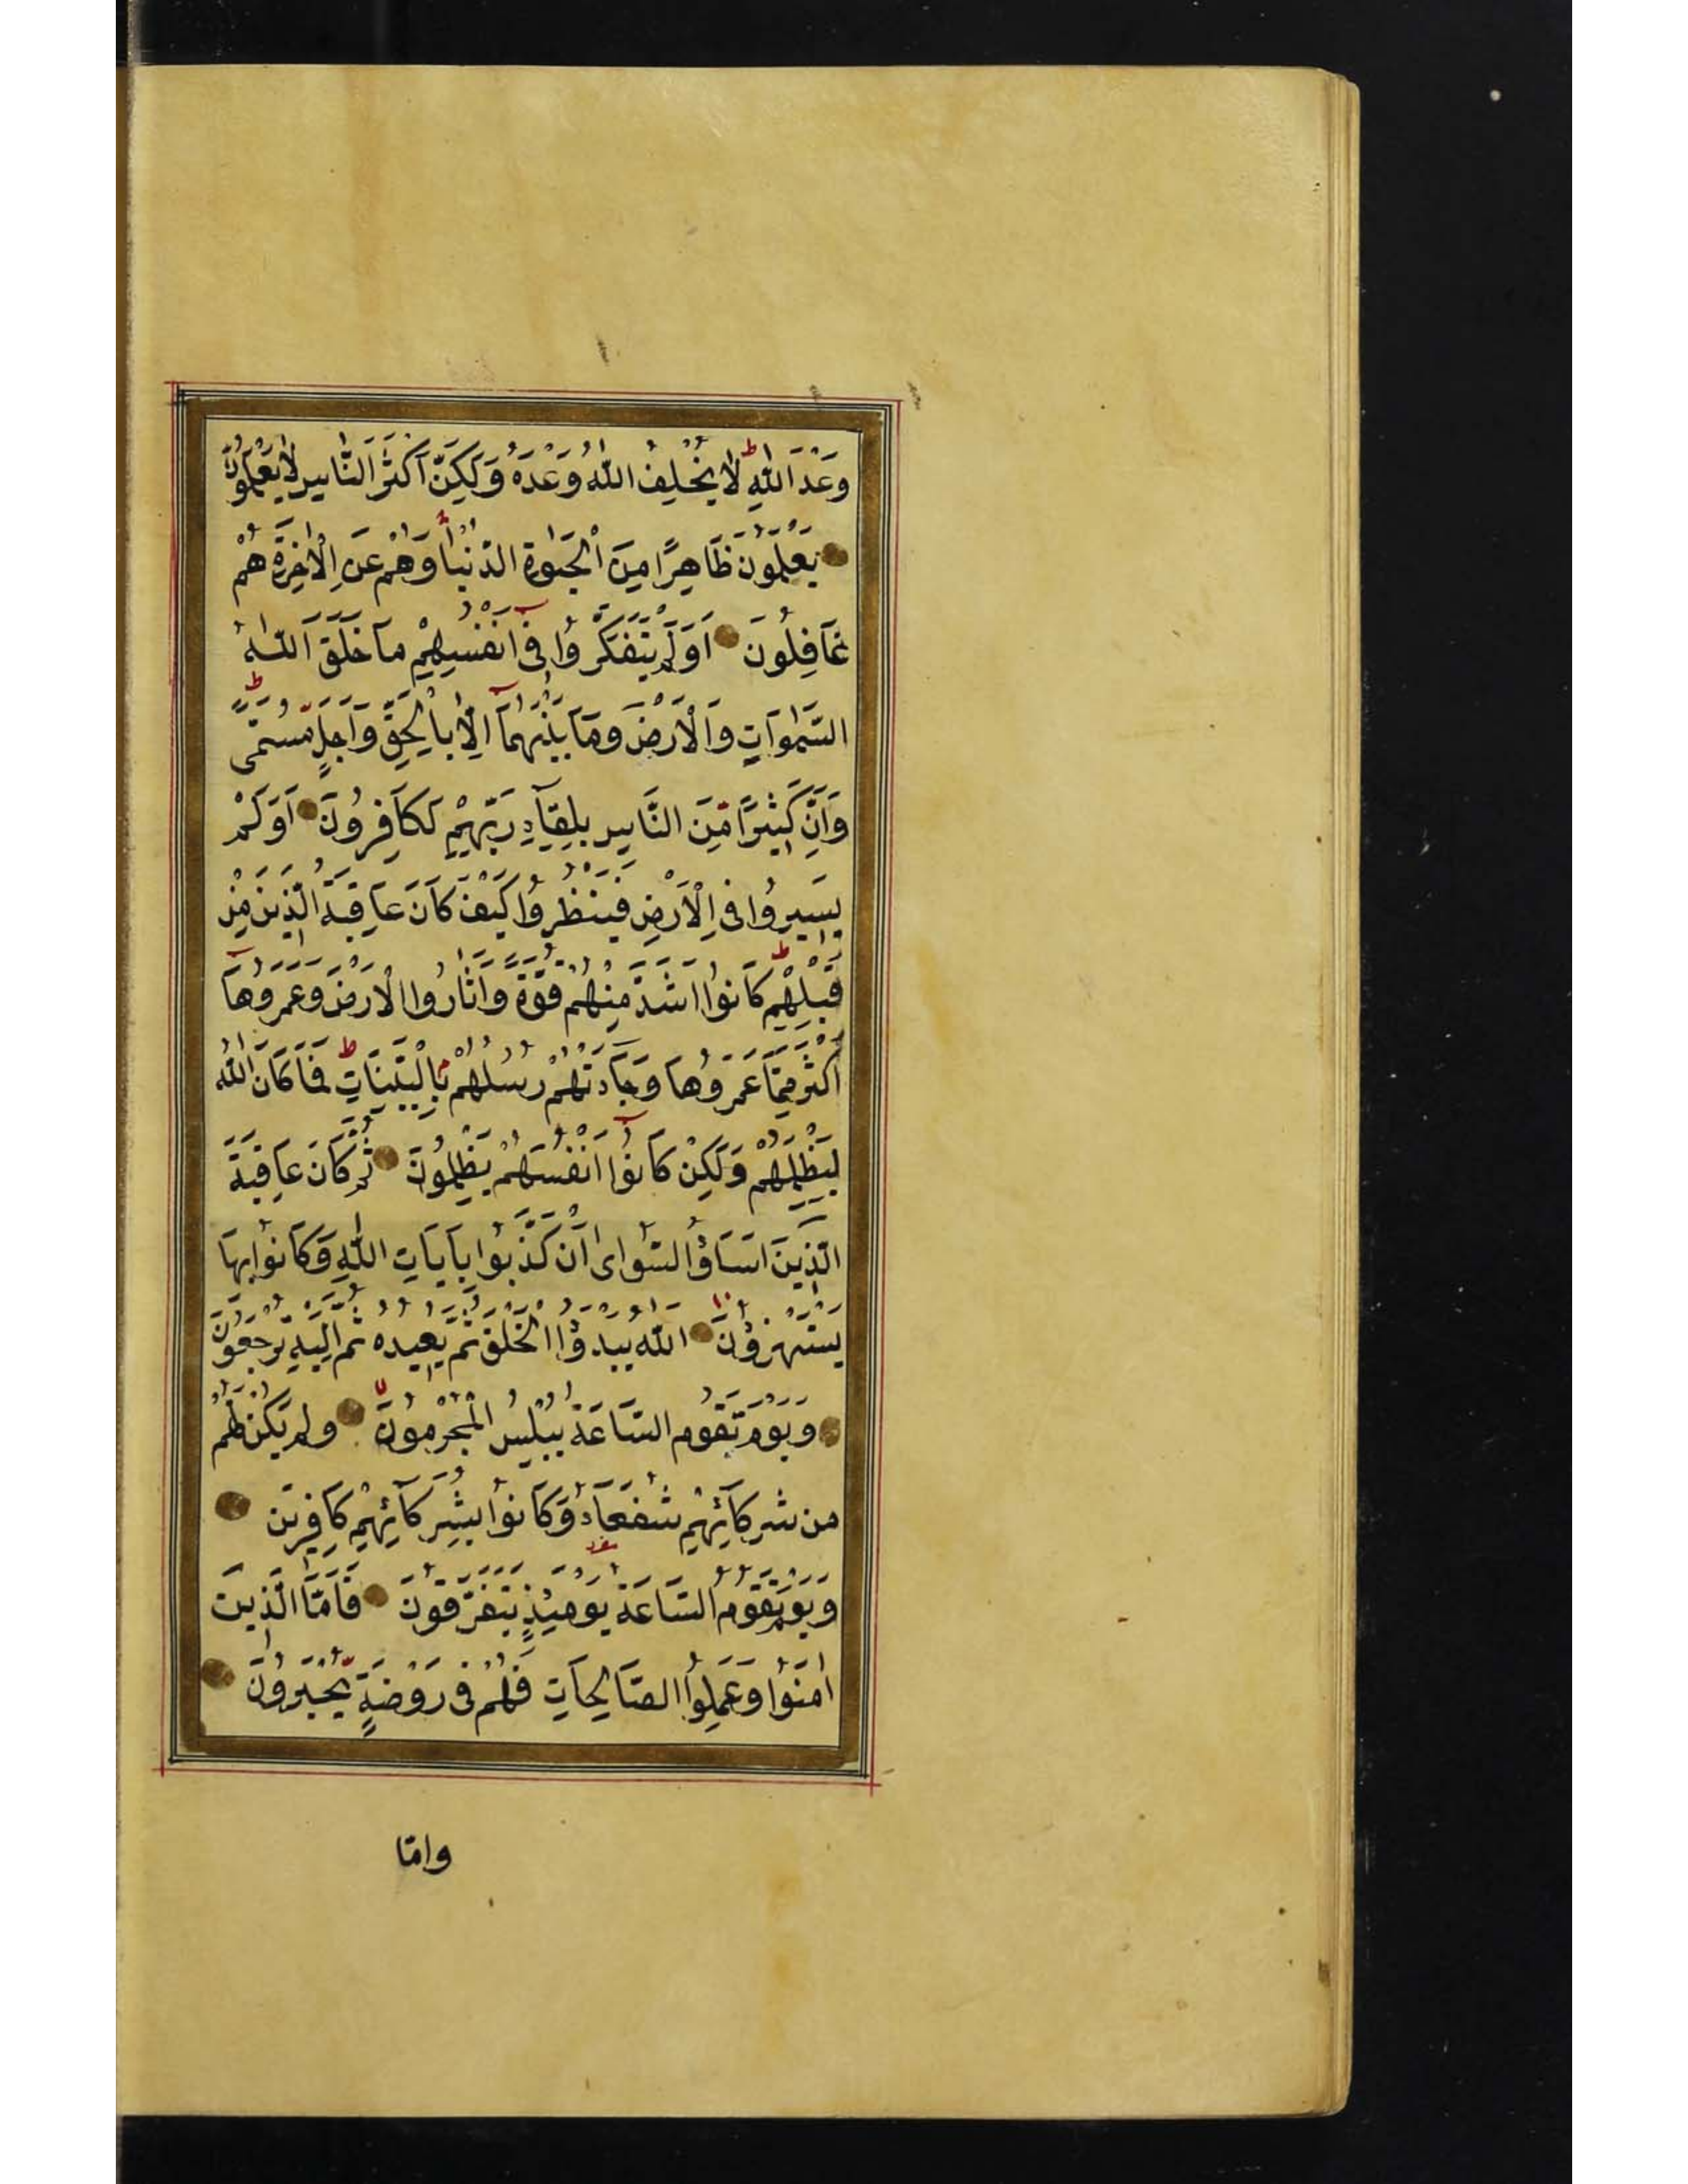 وَعْدَ اللّٰهِ ط لَا يُخْلِفُ اللّٰهُ وَعْدَهُ وَلٰكِنَّ اَكْثَرَ النَّاسِ لَا يَعْلَمُونَ
يَعْلَمُونَ ظَاهِرًا مِنَ الْحَيٰوةِ الدُّنْيَا وَهُمْ عَنِ الْاٰخِرَةِ هُمْ
غَافِلُونَ اَوَلَمْ يَتَفَكَّرُوا فٖى اَنْفُسِهِمْ مَا خَلَقَ اللّٰهُ
السَّمٰوَاتِ وَالْاَرْضَ وَمَا بَيْنَهُمَٓا اِلَّا بِالْحَقِّ وَاَجَلٍ مُسَمًّى ط
وَاِنَّ كَثٖيرًا مِنَ النَّاسِ بِلِقَٓاءِ رَبِّهِمْ لَكَافِرُونَ اَوَلَمْ
يَسٖيرُوا فِى الْاَرْضِ فَيَنْظُرُوا كَيْفَ كَانَ عَاقِبَةُ الَّذٖينَ مِنْ
قَبْلِهِمْ ط كَانُوا اَشَدَّ مِنْهُمْ قُوَّةً وَاَثَارُوا الْاَرْضَ وَعَمَرُوهَٓا
اَكْثَرَ مِمَّا عَمَرُوهَا وَجَٓاءَتْهُمْ رُسُلُهُمْ بِالْبَيِّنَاتِ ط فَمَا كَانَ اللّٰهُ
لِيَظْلِمَهُمْ وَلٰكِنْ كَانُٓوا اَنْفُسَهُمْ يَظْلِمُونَ ثُمَّ كَانَ عَاقِبَةَ
الَّذٖينَ اَسَٓاؤُا السُّوٓاٰى اَنْ كَذَّبُوا بِاٰيَاتِ اللّٰهِ وَكَانُوا بِهَا
يَسْتَهْزِؤُنَ اَللّٰهُ يَبْدَؤُا الْخَلْقَ ثُمَّ يُعٖيدُهُ ثُمَّ اِلَيْهِ تُرْجَعُونَ
وَيَوْمَ تَقُومُ السَّاعَةُ يُبْلِسُ الْمُجْرِمُونَ وَلَمْ يَكُنْ لَهُمْ
مِنْ شُرَكَٓائِهِمْ شُفَعَٓاءُ وَكَانُوا بِشُرَكَٓائِهِمْ كَافِرٖينَ
وَيَوْمَ تَقُومُ السَّاعَةُ يَوْمَئِذٍ يَتَفَرَّقُونَ فَاَمَّا الَّذٖينَ
اٰمَنُوا وَعَمِلُوا الصَّالِحَاتِ فَهُمْ فٖى رَوْضَةٍ يُحْبَرُونَ
وامّا